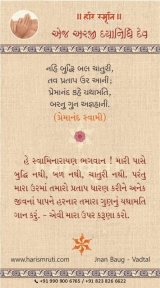 ॥ હરિ સ્મૃતિ ॥
એજ અરજી દયાનિધિ દેવ
નહિ બુદ્ધિ બલ ચાતુરી,
તવ પ્રતાપ ઉર આની;
પ્રેમાનંદ કહે યથામતિ,
બરનુ ગુન અજ્ઞાની.
(પ્રેમાનંદ સ્વામી)
હે સ્વામિનારાયણ ભગવાન ! મારી પાસે
બુદ્ધિ નથી, બળ નથી, ચાતુરી નથી. પરંતુ
મારા ઉરમાં તમારો પ્રતાપ ધારણ કરીને અનેક
જીવનાં પાપને હરનાર તમારા ગુણનું યથામતિ
ગાન કરું. - એવી મારા ઉપર કરૂણા કરો.
www.harismruti.com
Jnan Baug - Vadtal
+91 990 900 6765 / +91 823 826 6622